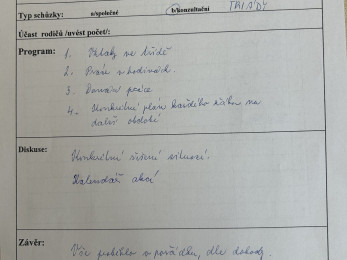 TŘI SÓDY
Typ schůzky: a/společné b/konzultační
Účast rodičů /uvést počet/:
Program: 1. Vztahy ve třídě
2. Práce v hodinách.
3. Domácí práce
4. Konkrétní plán každého žáka na
další období
Diskuse:
Konkrétní řešení situací.
Kalendář akcí
Závěr:
Vše proběhlo v pořádku, dle dohody.